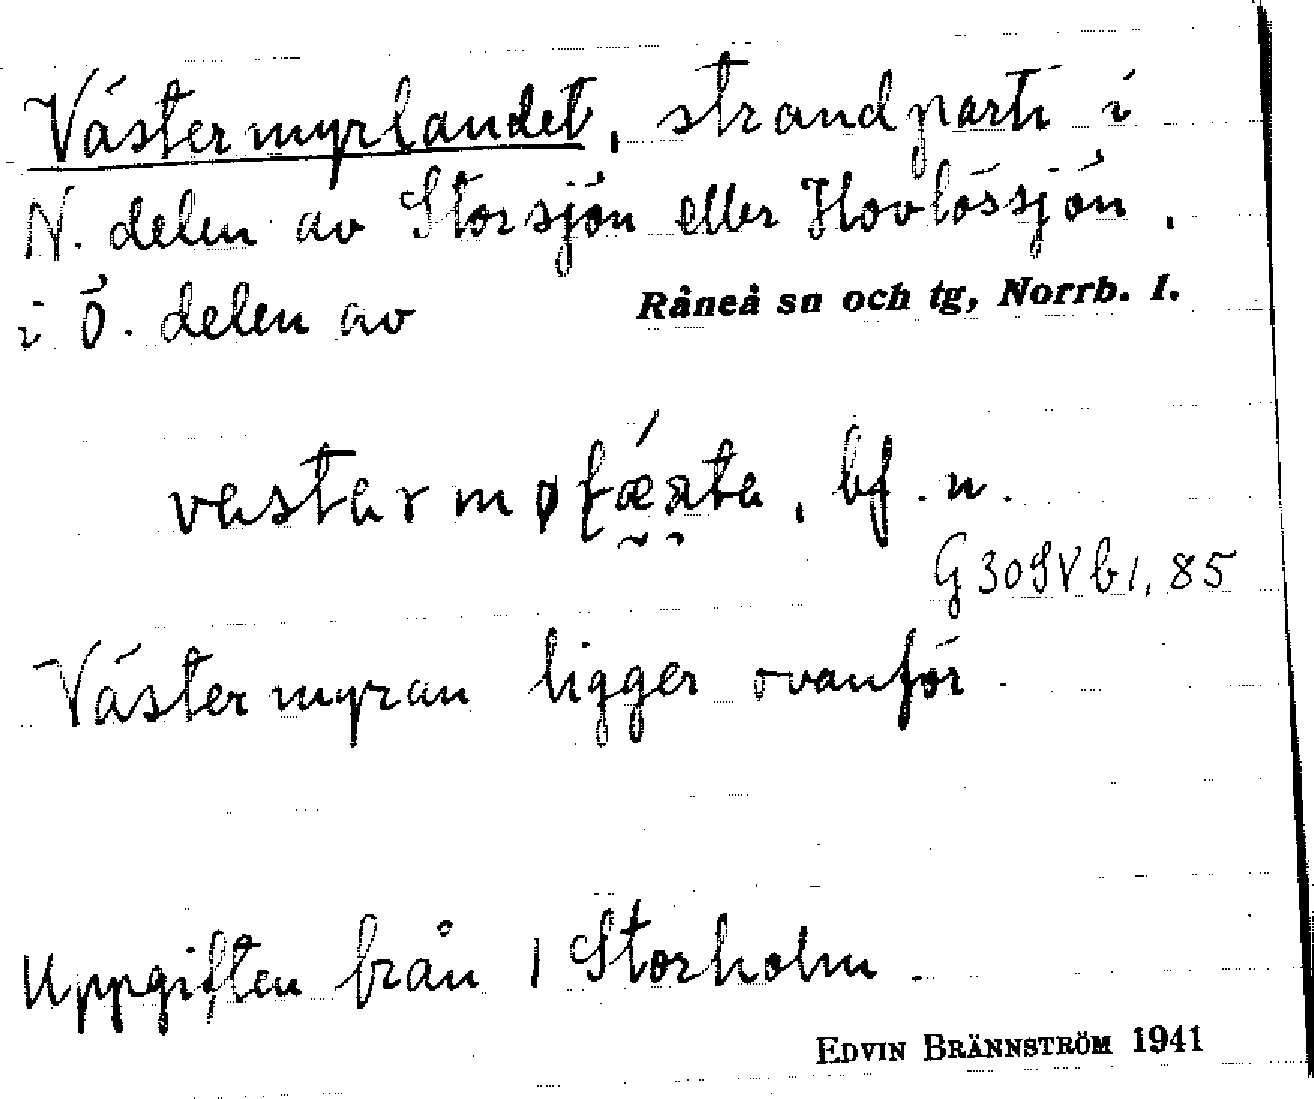 Västermyrlandet, strandparti i
N. delen av Storsjön eller Hovlössjön,
i Ö. delen av Råneå sn och tg, Norrb. l.
bf. n.
G30SVb1, 85
Västermyran ligger ovanför
Uppgiften från 1 Storholm.
EDVIN BRÄNNSTRÖM 1941